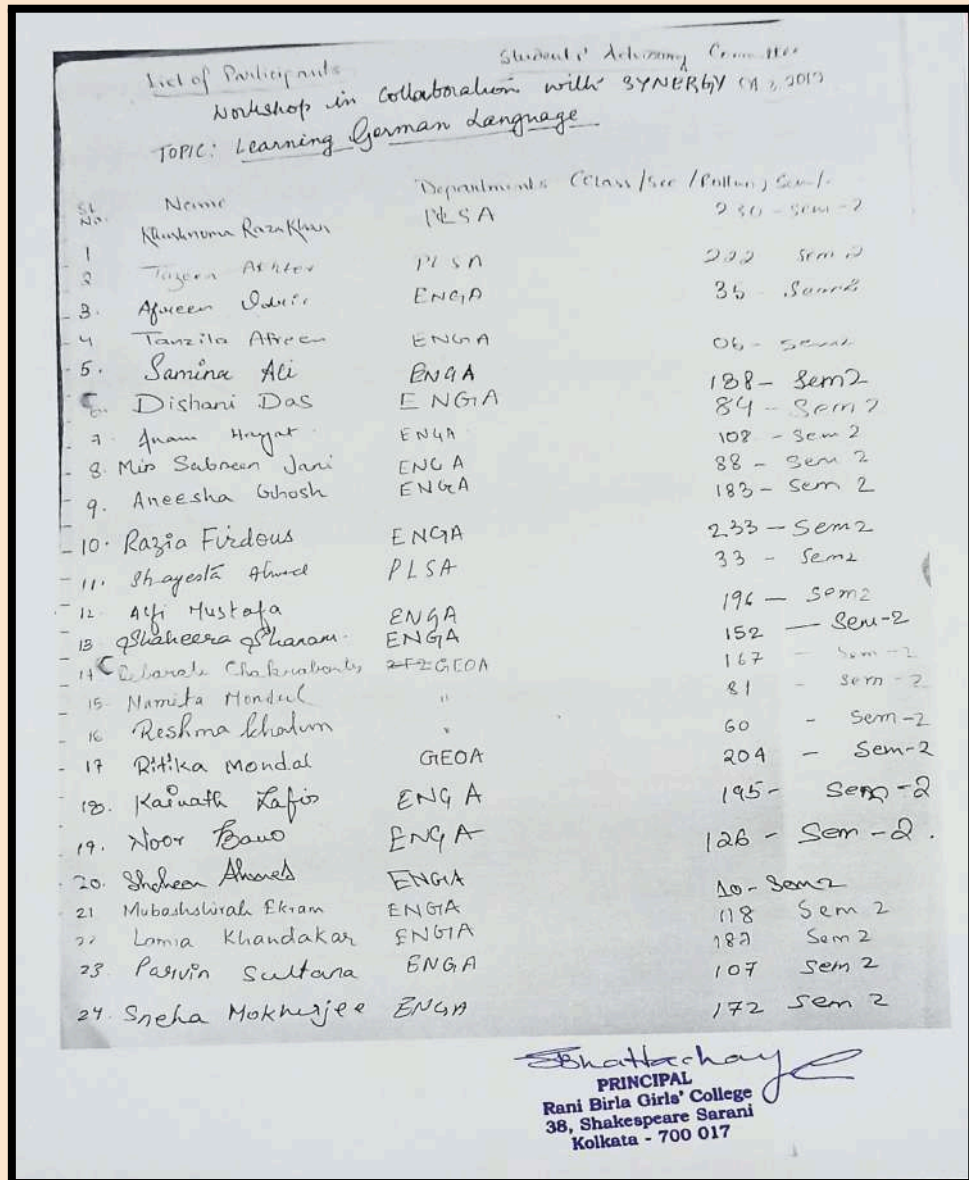 List of Participants Students' Advisory Committee
Workshop in Collaboration with SYNERGY
TOPIC: Learning German Language
Sl. No. Name Departments (Class/Sec/Roll no) Sem
1 Khushnuma Raza Khan PLSA 230 - Sem-2
2 Tazeen Akhter PLSA 222 Sem 2
3. Afreen ENGA 35 - Sem 2
4 Tanzila Afreen ENGA 06 - Sem2
5. Samina Ali ENGA 138 - Sem2
6. Dishani Das ENGA 84 - Sem 2
7. Anam Hayat ENGA 108 - Sem 2
8. Mis Sabreen Jani ENGA 88 - Sem 2
9. Aneesha Ghosh ENGA 183 - Sem 2
10. Razia Firdous ENGA 233 - Sem2
11. Shayesta Ahmed PLSA 33 - Sem2
12. Alfi Mustafa ENGA 196 - Sem2
13 Shaheera Shanam. ENGA 152 - Sem-2
14 Chakraborty GEOA 167 - Sem-2
15. Namita Mondul " 81 - Sem-2
16 Reshma Khatun " 60 - Sem-2
17 Ritika Mondal GEOA 204 - Sem-2
18. Kainath Zafir ENGA 195 - Sem-2
19. Noor Bano ENGA 126 - Sem-2.
20. Shaheen Ahmed ENGA 10 - Sem2
21 Mubashshirah Ekram ENGA 118 Sem 2
22 Lamia Khandakar ENGA 182 Sem 2
23. Parvin Sultana ENGA 107 Sem 2
24. Sneha Mokherjee ENGA 172 Sem 2
SBhattacharya
PRINCIPAL
Rani Birla Girls' College
38, Shakespeare Sarani
Kolkata - 700 017